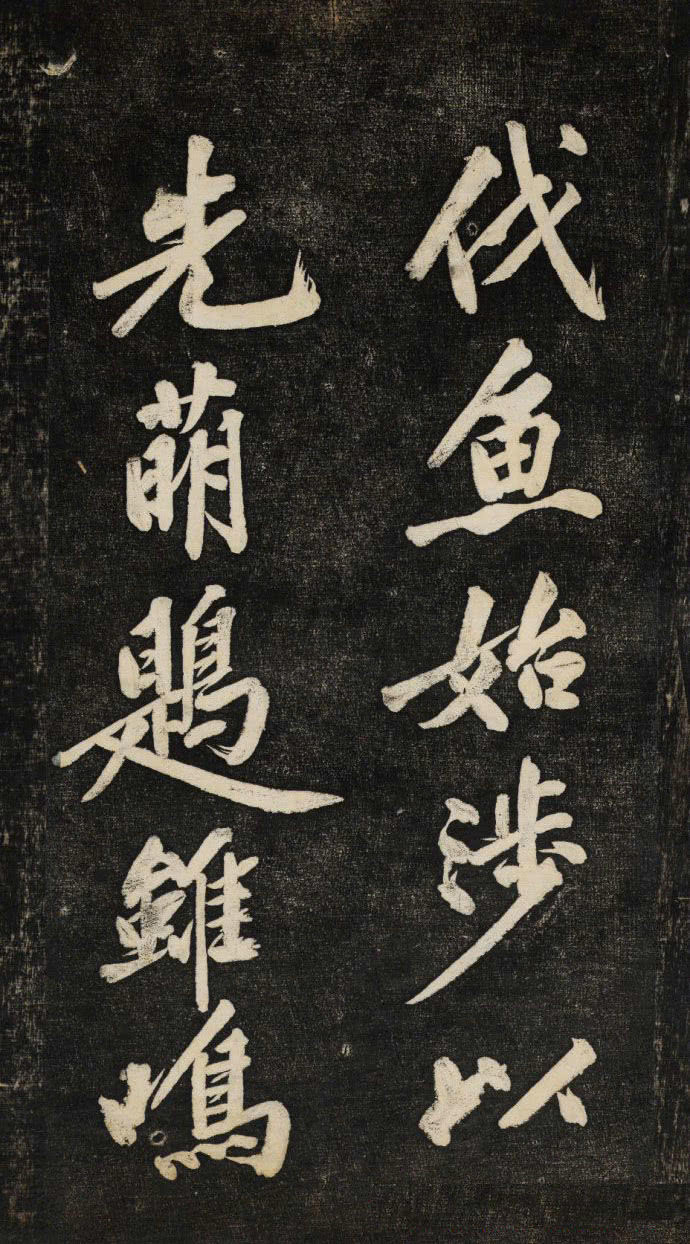 伐魚始涉以
先萌鶗雖鳴